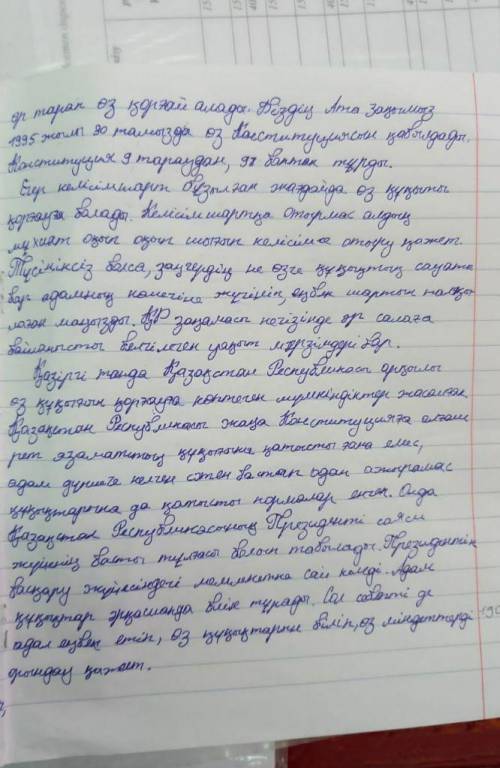 әр тарап өз қорғай алады. Біздің Ата заңымыз
1995 жылы 30 тамызда өз Конституциясын қабылдады.
Конституция 9 тараудан, 98 баптан тұрды.
Егер келісімшарт бұзылған жағдайда өз құқығын
қорғауға болады. Келісімшартқа отырмас алдың
мұхият оқып оқып шығып келісімге отыру қажет.
Түсініксіз болса, заңгердің не өзге құқықтық сауаты
бар адамның көмегіне жүгініп, еңбек шартын талқы
лаған маңызды. ҚР заңамасы негізінде әр салаға
байланысты белгіленген уақыт мерзімдері бар.
Қазіргі таңда Қазақстан Республикасы арқылы
өз құқығын қорғауға көптеген мүмкіндіктер жасалған.
Қазақстан Республикасы жаңа Конституцияға алғаш
рет азаматтың құқығына қатысты ғана емес,
адам дүниеге келген сәттен бастап одан ажырамас
құқықтарына да қатысты нормалар енген. Онда
Қазақстан Республикасының Президенті саяси
жүйенің басты тұлғасы болып табылады. Президенттік
басқару жүйесіндегі мемлекетке сай келеді. Адам
құқықтар әрқашанда биік тұрады. Сол себепті де
адал еңбек етіп, өз құқықтарын біліп, өз міндеттерді
орындау қажет.